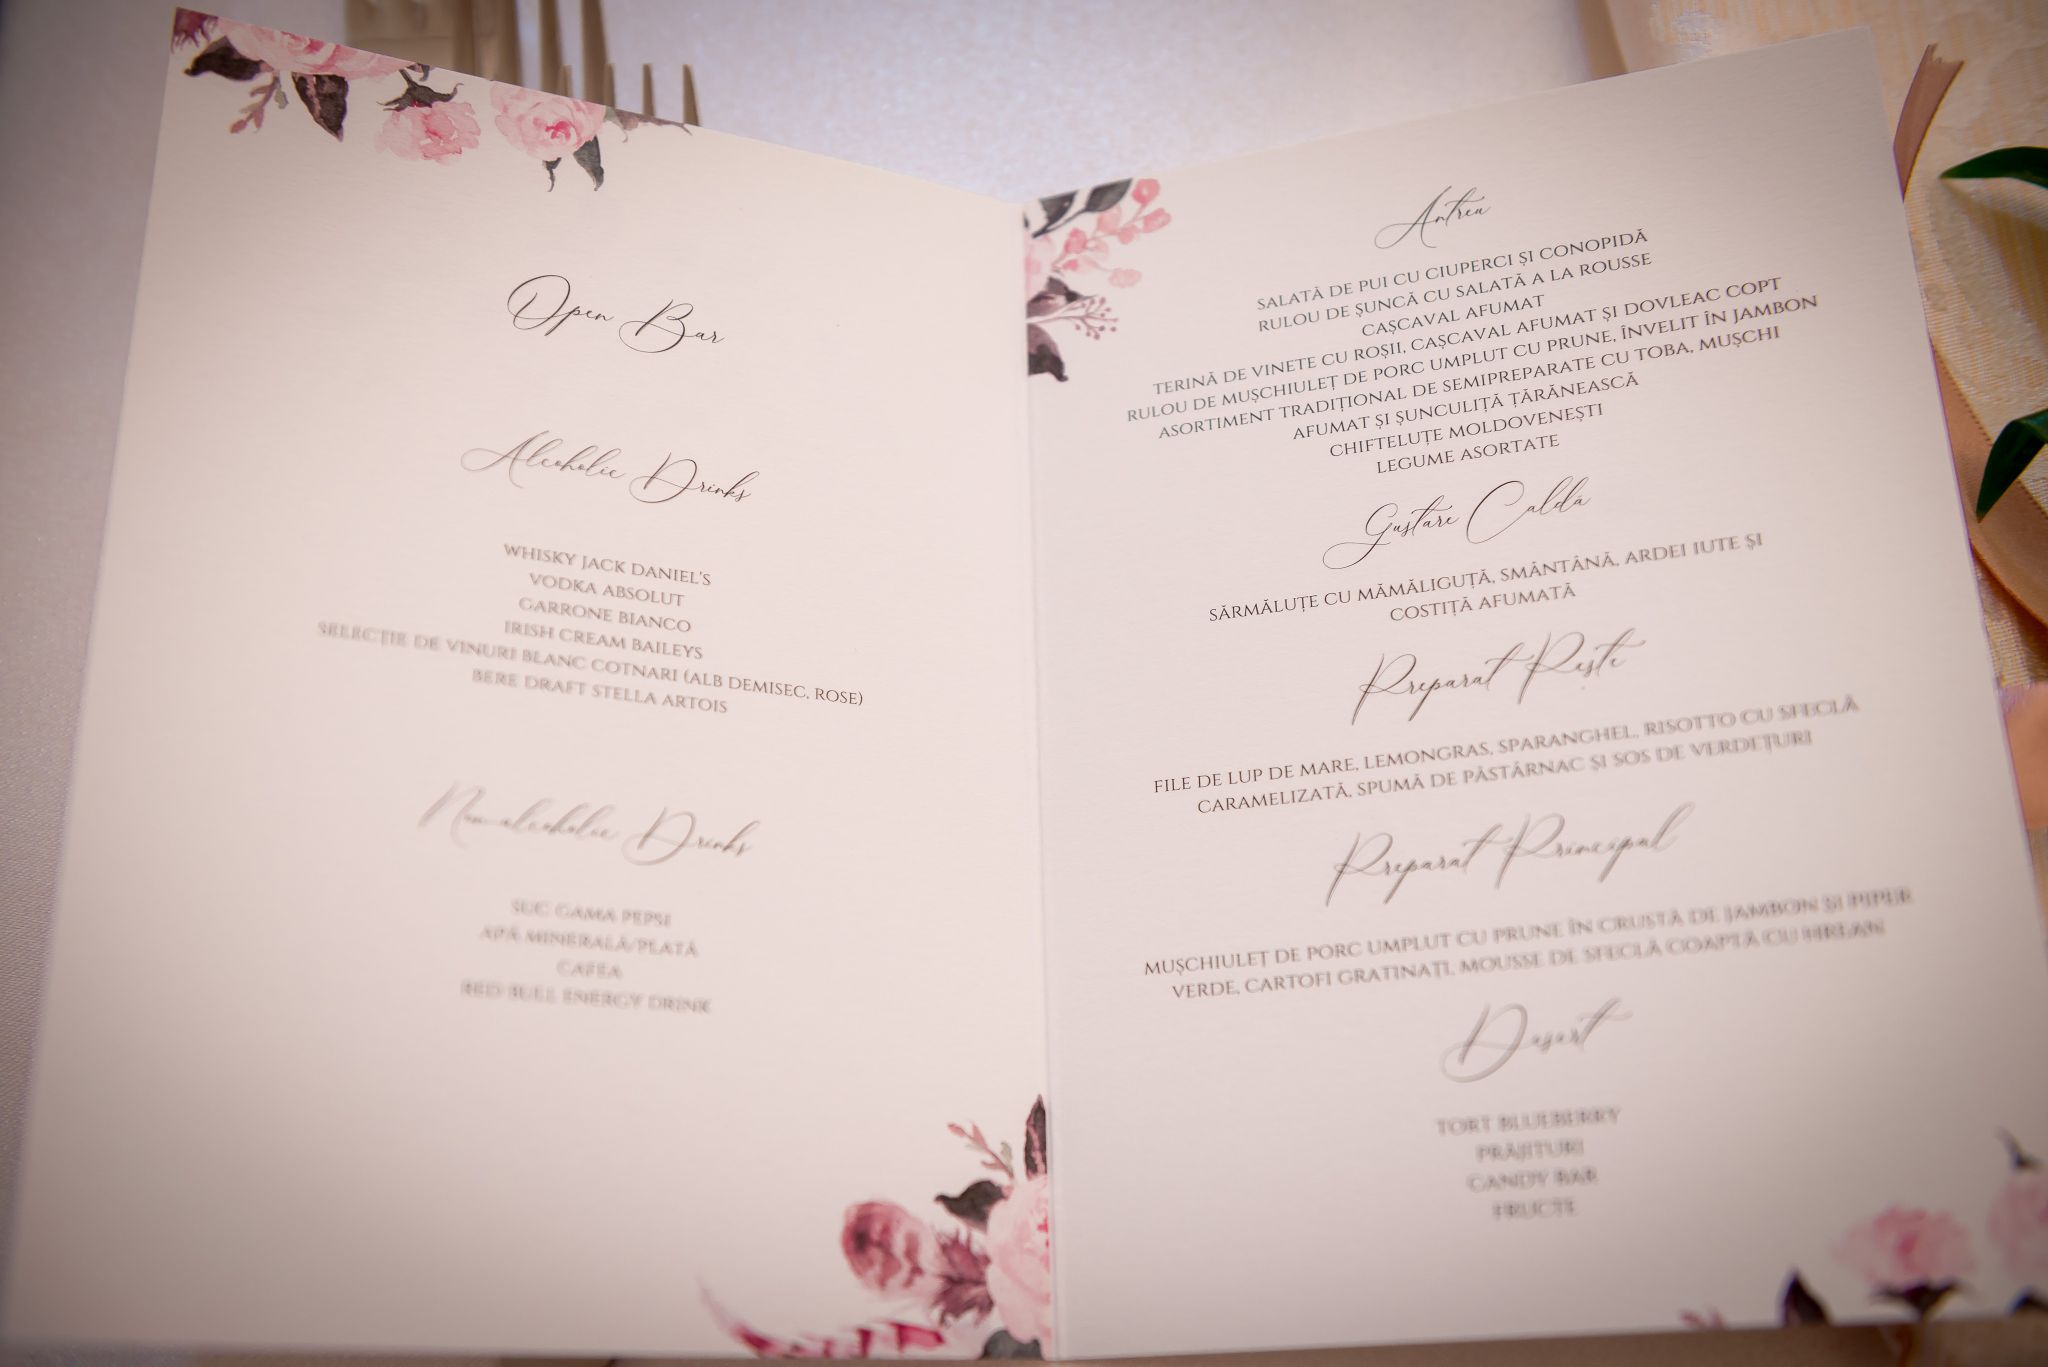 Open Bar
Alcoholic Drinks
WHISKY JACK DANIEL'S
VODKA ABSOLUT
GARRONE BIANCO
IRISH CREAM BAILEYS
SELECȚIE DE VINURI BLANC COTNARI (ALB DEMISEC, ROSE)
BERE DRAFT STELLA ARTOIS
Non-alcoholic Drinks
SUC GAMA PEPSI
APĂ MINERALĂ/PLATĂ
CAFEA
RED BULL ENERGY DRINK
Antreu
SALATĂ DE PUI CU CIUPERCI ȘI CONOPIDĂ
RULOU DE ȘUNCĂ CU SALATĂ A LA ROUSSE
CAȘCAVAL AFUMAT
TERINĂ DE VINETE CU ROȘII, CAȘCAVAL AFUMAT ȘI DOVLEAC COPT
RULOU DE MUȘCHIULEȚ DE PORC UMPLUT CU PRUNE, ÎNVELIT ÎN JAMBON
ASORTIMENT TRADIȚIONAL DE SEMIPREPARATE CU TOBA, MUȘCHI
AFUMAT ȘI ȘUNCULIȚĂ ȚĂRĂNEASCĂ
CHIFTELUȚE MOLDOVENEȘTI
LEGUME ASORTATE
Gustare Caldă
SĂRMĂLUȚE CU MĂMĂLIGUȚĂ, SMÂNTÂNĂ, ARDEI IUTE ȘI
COSTIȚĂ AFUMATĂ
Preparat Pește
FILE DE LUP DE MARE, LEMONGRAS, SPARANGHEL, RISOTTO CU SFECLĂ
CARAMELIZATĂ, SPUMĂ DE PĂSTÂRNAC ȘI SOS DE VERDEȚURI
Preparat Principal
MUȘCHIULEȚ DE PORC UMPLUT CU PRUNE ÎN CRUSTĂ DE JAMBON ȘI PIPER
VERDE, CARTOFI GRATINAȚI, MOUSSE DE SFECLĂ COAPTĂ CU HREAN
Dasart
TORT BLUEBERRY
PRĂJITURI
CANDY BAR
FRUCTE